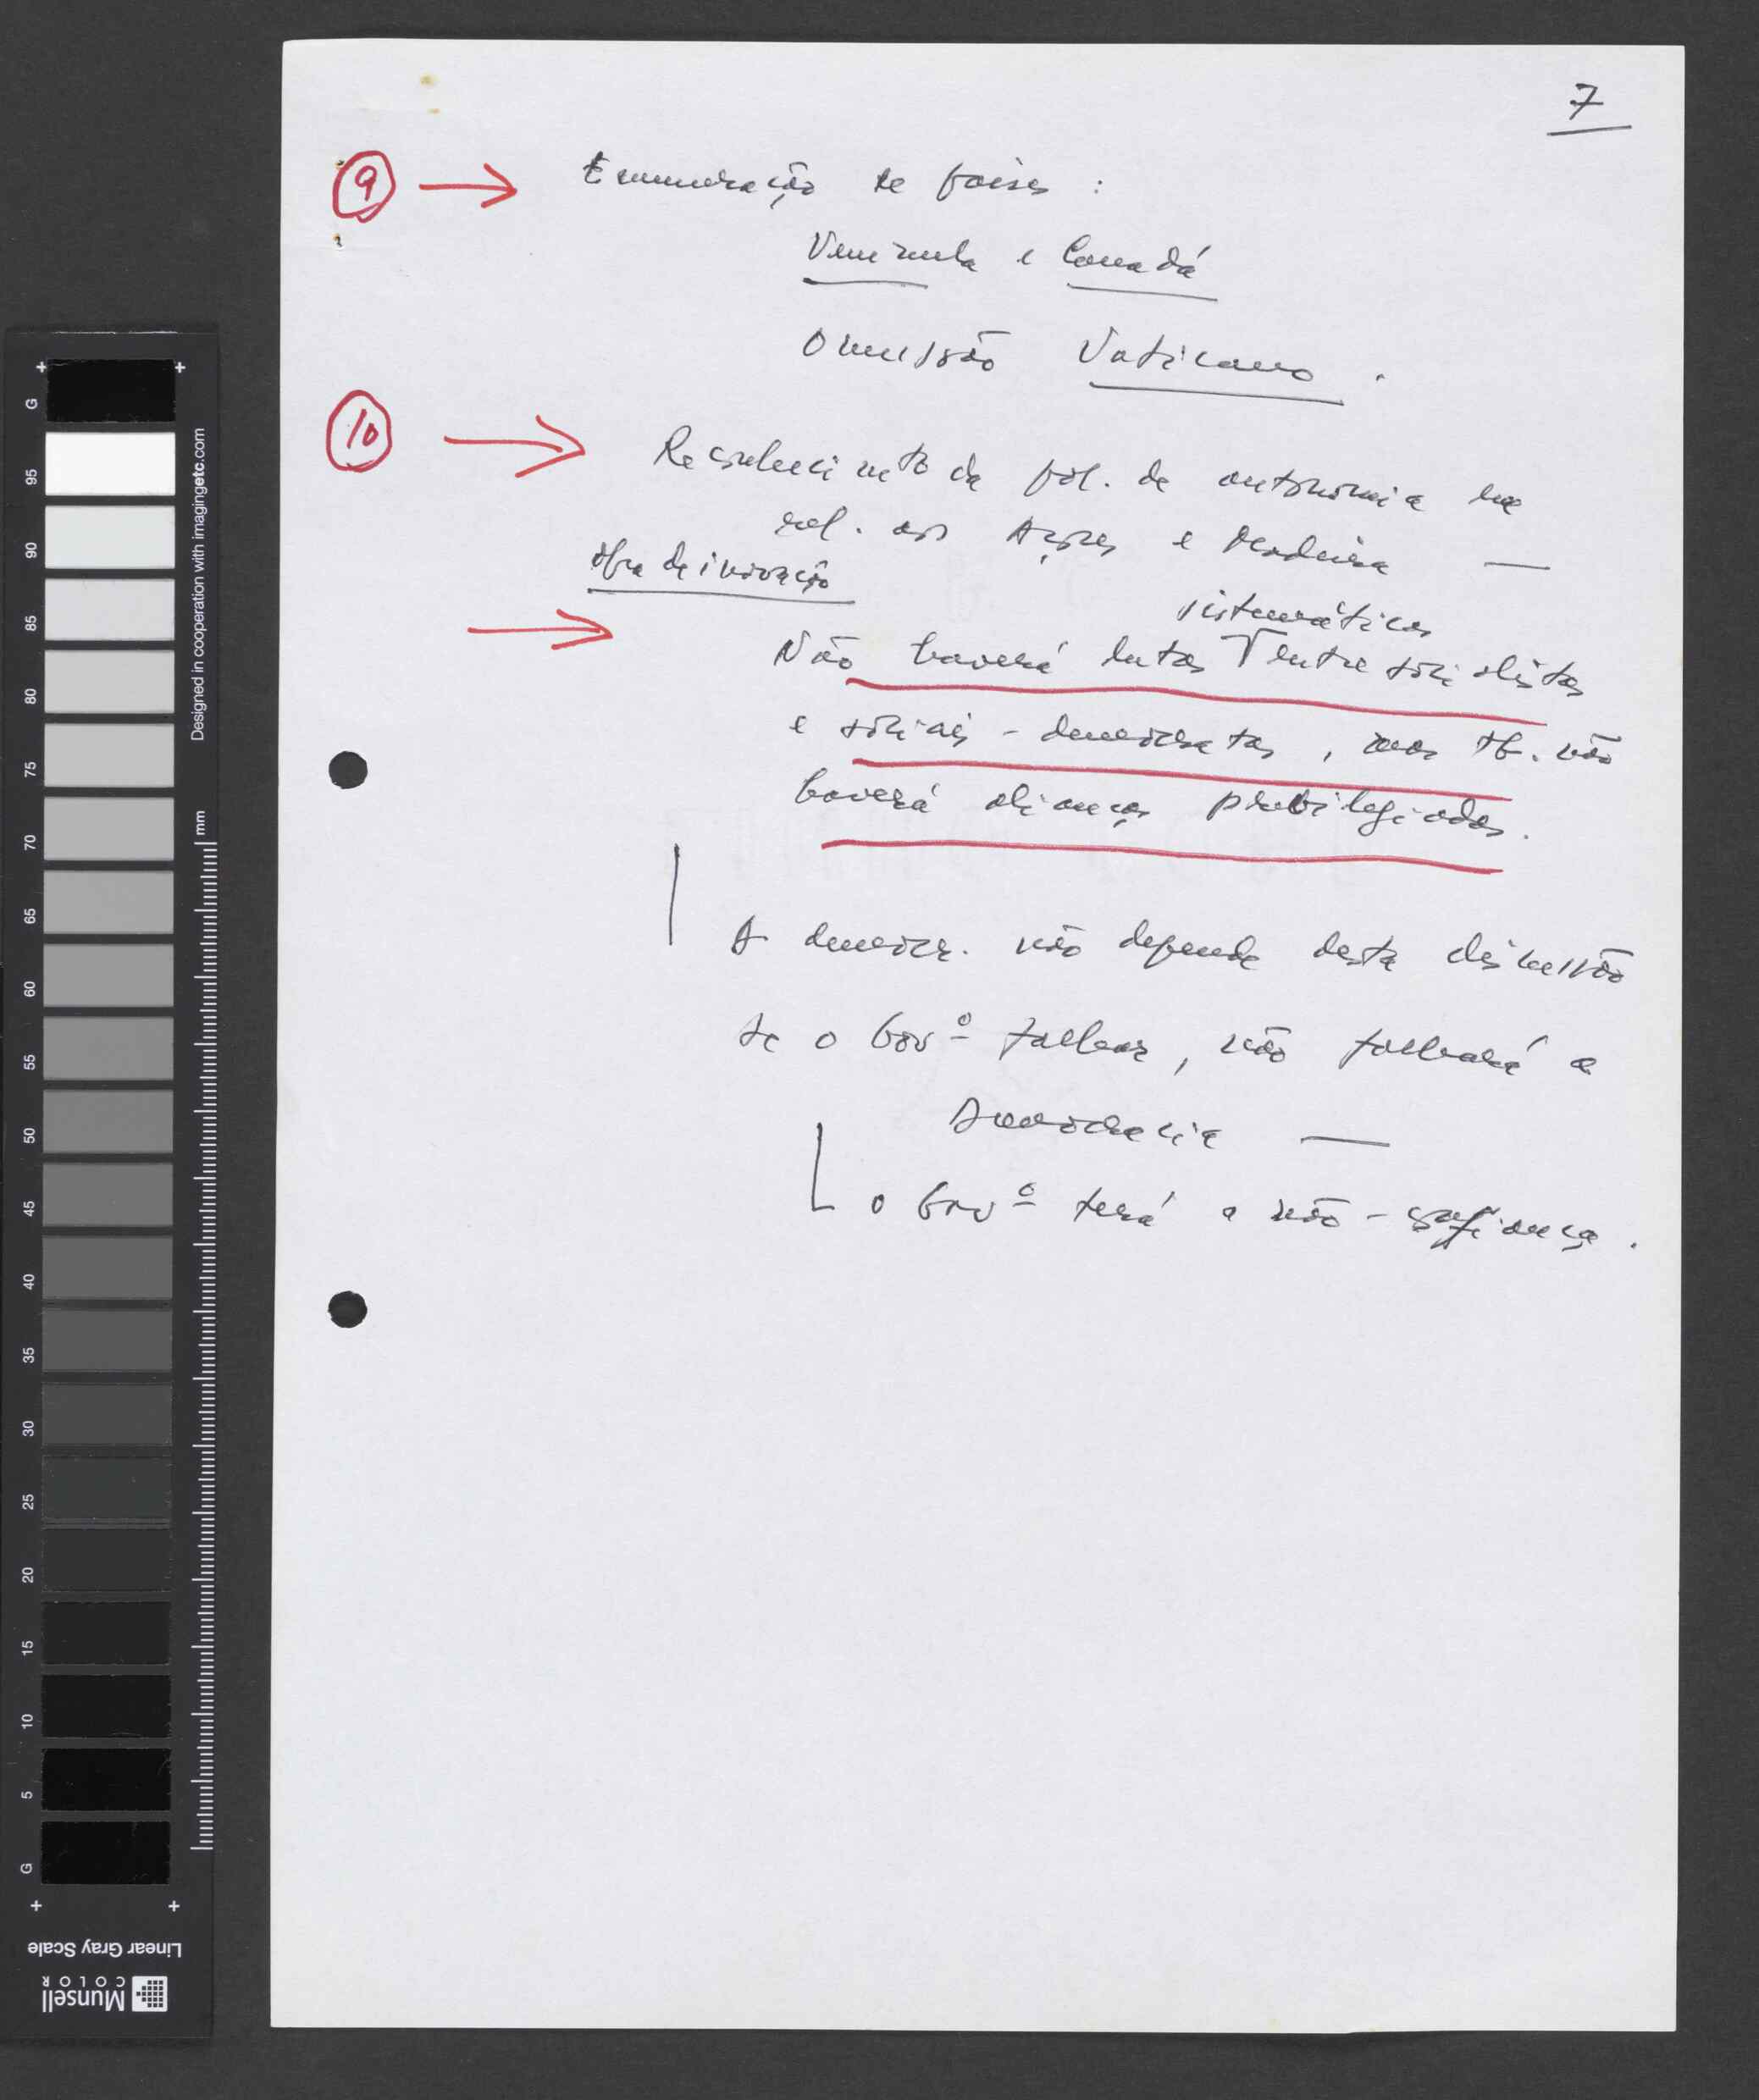 7
9 → Enumeração de países :
Venezuela e Canadá
Omissão Vaticano .
10 → Reconhecimto da pol. de autonomia na
rel. aos Açores e Madeira —
obra de inovação
sistemáticas
→ Não haverá lutas entre socialistas
e sociais - democratas , mas tb. não
haverá alianças privilegiadas .
A democr. não depende desta discussão
Se o Govº falhar , não falhará a
Democracia —
o Govº terá a não - confiança .
G
95
90
85
80
75
70
65
60
55
50
45
40
35
30
25
20
15
10
5
G
Designed in cooperation with imagingetc.com
mm
Linear Gray Scale
Munsell
COLOR